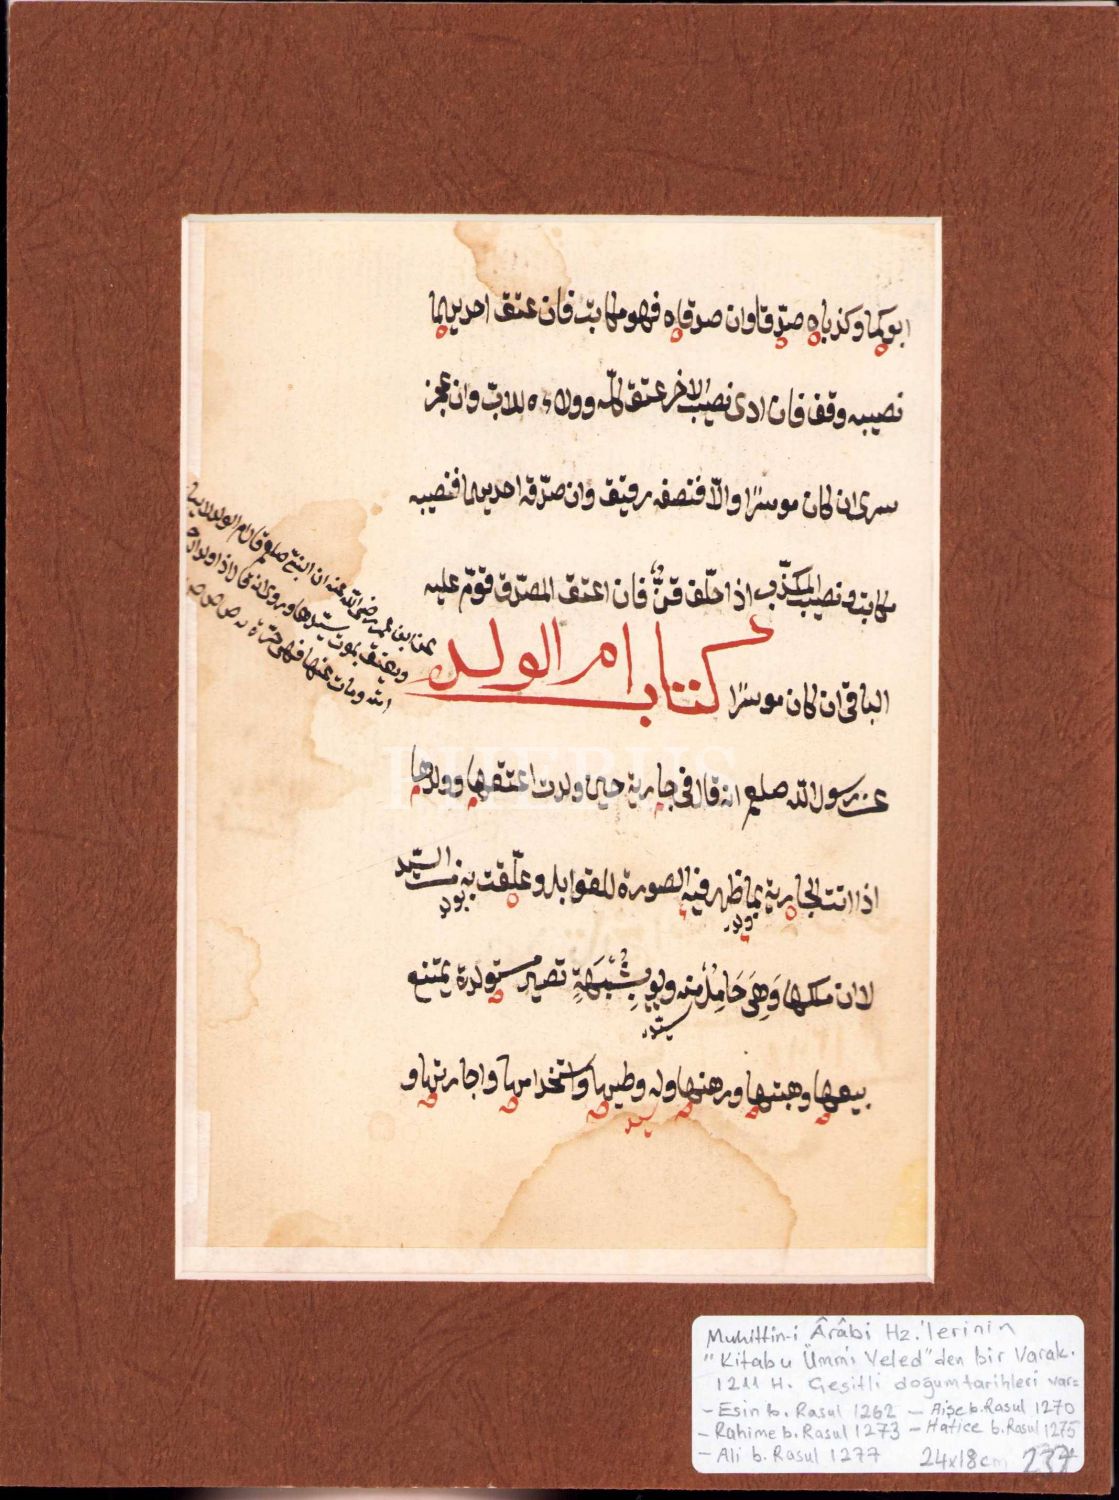 ابوكما وكذباه صدّقا وان صدقاه فهو مكاتب فان عتق احديهما
نصيبه وقف فان ادى نصيب الاخر عتق كلّه وولاءه للاب وان عجز
سرى ان كان موسرًا والّا فنصفه رقيق وان صدّقه احديهما فنصيبه
مكاتب ونصيب المكذّب اذا حلف قنٌّ فان اعتق المصدّق قوّم عليه
الباقى ان كان موسرًا كتاب ام الولد
عن رسول الله صلعم انه قال فى جارية حين ولدت اعتقها وولدها
اذا اتت الجارية بما ظهر فيه الصورة للقوابل وعلّقت به من السيّد
ولد
لا ان ملكها وَهِىَ حَامِلٌ منه ولو بِشُبْهَةٍ تصير مستولدة يمتنع
بيعها وهبتها ورهنها وله وطيها واستخدامها واجارتها و
عن ابن عمر رضى الله عنه ان النبىّ صلعم قال ام الولد لا
ويعتق بموت سيّدها
ومات عنها فهى حرّة
PHEBUS
Muhittin-i Ârâbi Hz.'lerinin
"Kitabu Ümm'i Veled"den bir Varak.
1211 H. Çeşitli doğum tarihleri var=
- Esin b. Rasul 1262 - Aişe b. Rasul 1270
- Rahime b. Rasul 1273 - Hatice b. Rasul 1275
- Ali b. Rasul 1277 24x18cm 237